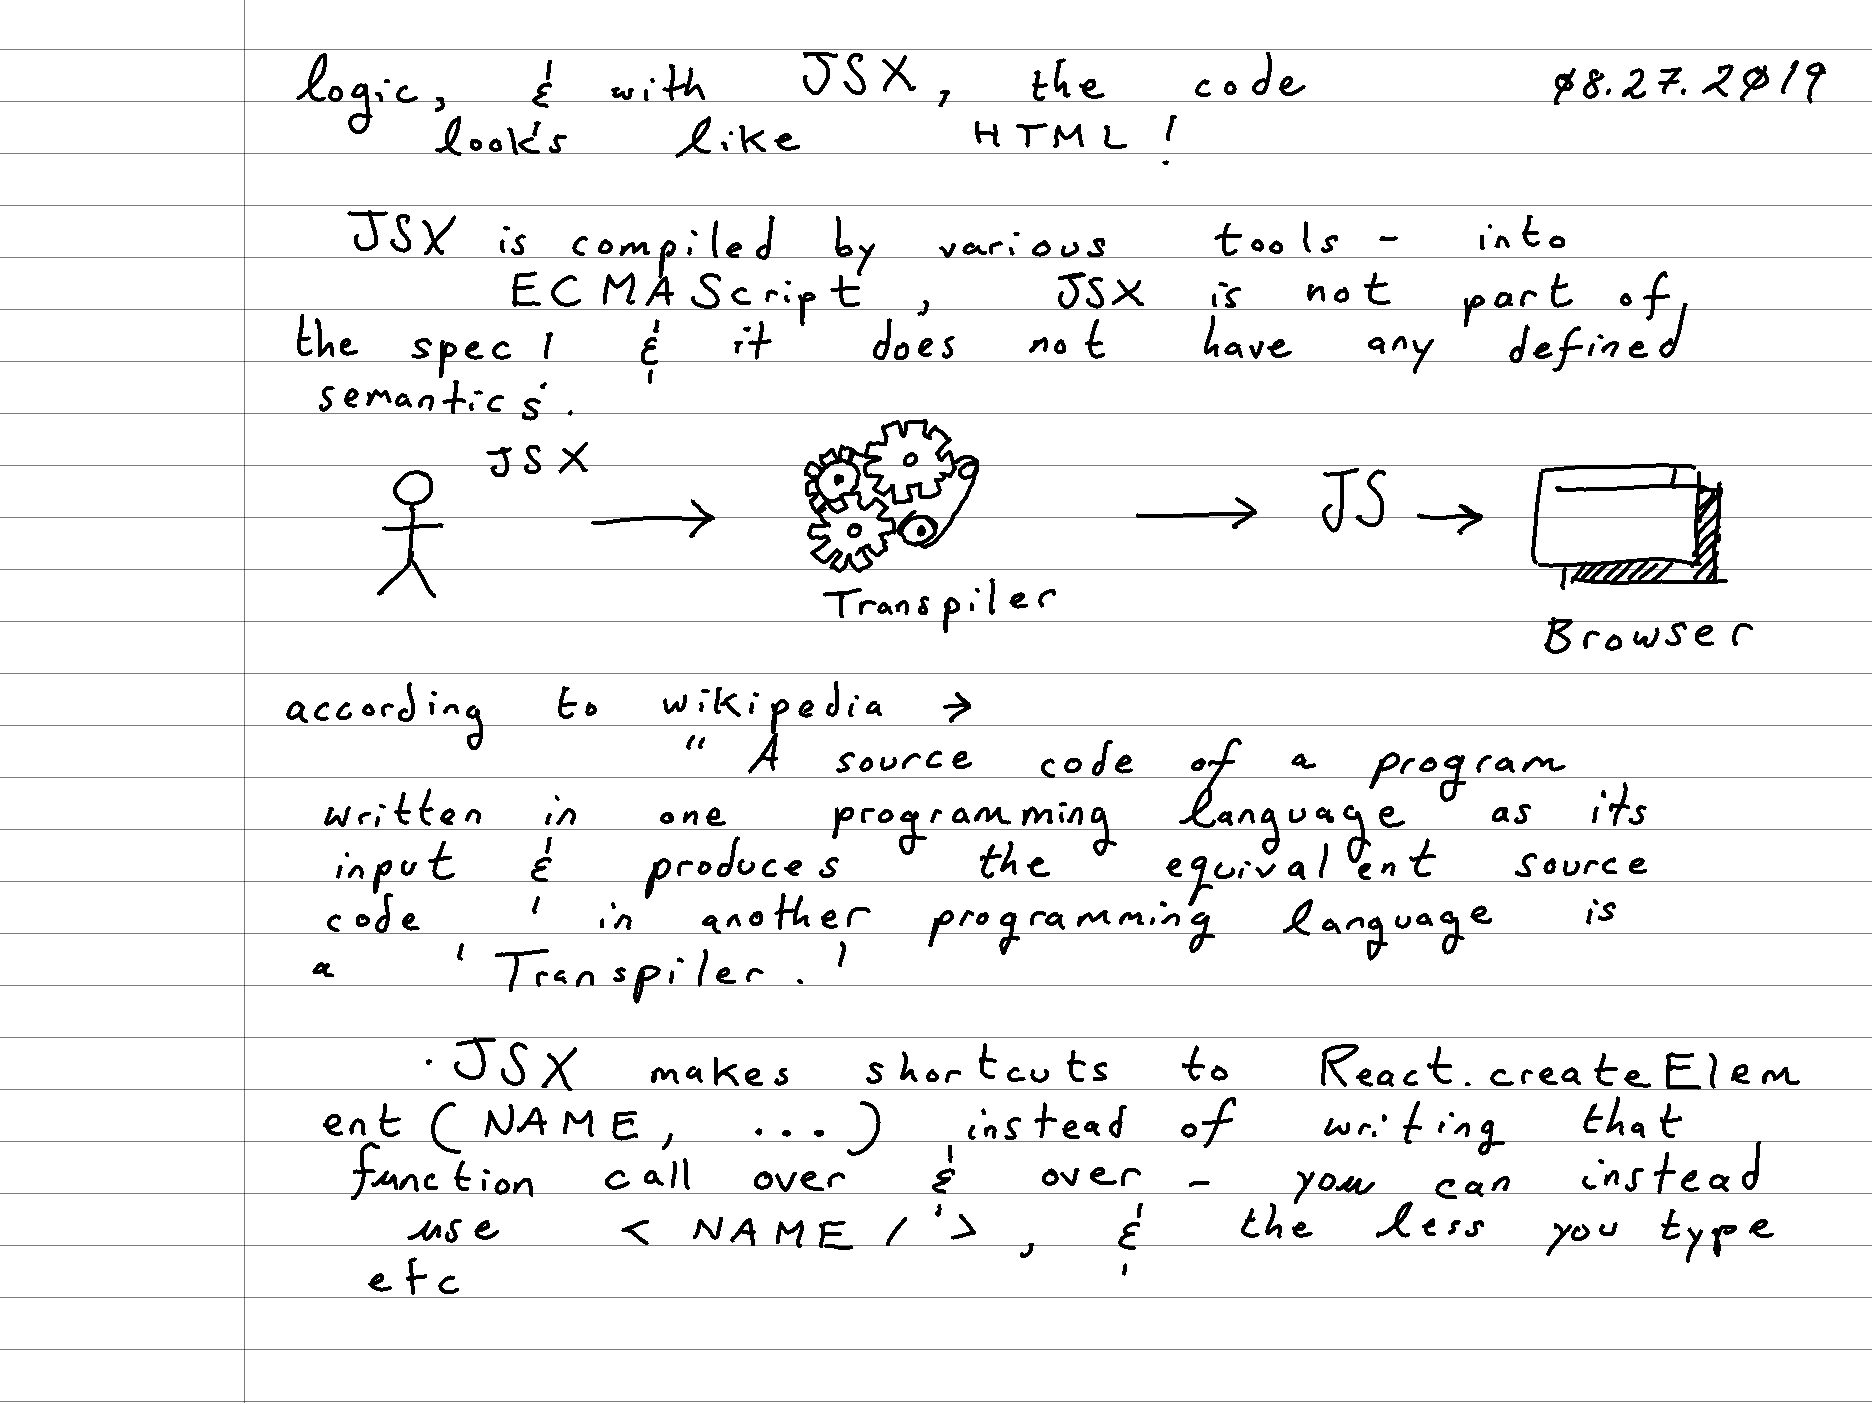 logic, & with JSX, the code 08.27.2019
looks like HTML!
JSX is compiled by various tools - into
ECMAScript, JSX is not part of
the spec! & it does not have any defined
semantics.
JSX
JS
Transpiler
Browser
according to wikipedia →
" A source code of a program
written in one programming language as its
input & produces the equivalent source
code in another programming language is
a 'Transpiler.'
· JSX makes shortcuts to React.createElem
ent(NAME, ...) instead of writing that
function call over & over - you can instead
use < NAME / >, & the less you type
etc